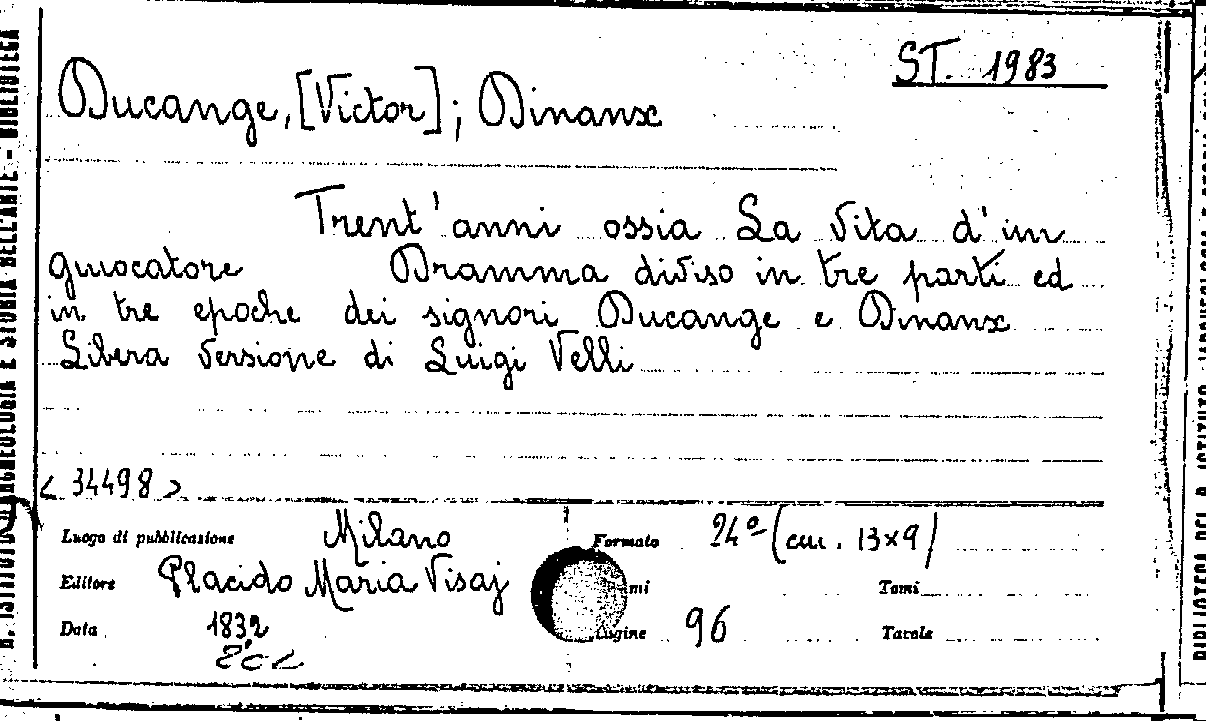 ST. 1983
Ducange, [Victor]; Dinanx
Trent'anni ossia La Vita d'un
giuocatore Dramma diviso in tre parti ed
in tre epoche dei signori Ducange e Dinanx
Libera Versione di Luigi Velli
< 34498 >
Luogo di pubblicazione Milano Formato 24º (cm. 13x9)
Editore Placido Maria Visaj Tomi
Data 1832 Pagine 96 Tavole
R. ISTITUTO D'ARCHEOLOGIA E STORIA DELL'ARTE - BIBLIOTECA
BIBLIOTECA DEL R. ISTITUTO